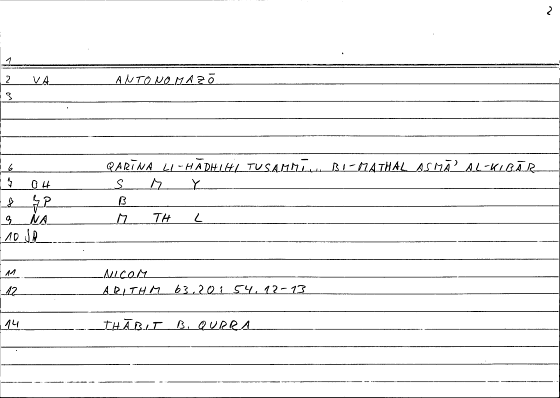 2
1
2 VA ANTONOMAZŌ
3
6 QARĪNA LI-HĀDHIHI TUSAMMĪ... BI-MATHAL ASMĀ' AL-KIBĀR
7 OH S M Y
8 SP B
9 NA M TH L
10
11 NICOM
12 ARITHM 63.20: 54.12-13
14 THĀBIT B. QURRA